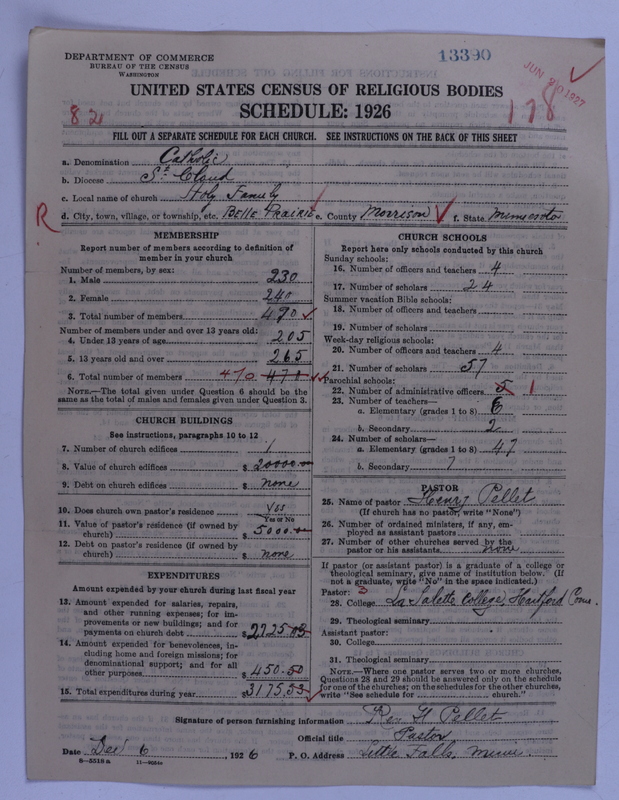 DEPARTMENT OF COMMERCE
BUREAU OF THE CENSUS
WASHINGTON
13390
JUN 20 1927
UNITED STATES CENSUS OF RELIGIOUS BODIES
SCHEDULE: 1926
82
178
FILL OUT A SEPARATE SCHEDULE FOR EACH CHURCH. SEE INSTRUCTIONS ON THE BACK OF THIS SHEET
a. Denomination Catholic
b. Diocese St. Cloud
c. Local name of church Holy Family
R
d. City, town, village, or township, etc. BELLE PRAIRIE e. County Morrison f. State Minnesota
MEMBERSHIP
Report number of members according to definition of
member in your church
Number of members, by sex:
1. Male 230
2. Female 240
3. Total number of members 470
Number of members under and over 13 years old:
4. Under 13 years of age 205
5. 13 years old and over 265
6. Total number of members 470 470
NOTE.—The total given under Question 6 should be the
same as the total of males and females given under Question 3.
CHURCH BUILDINGS
See instructions, paragraphs 10 to 12
7. Number of church edifices 1
8. Value of church edifices $ 20000.00
9. Debt on church edifices $ none
10. Does church own pastor's residence Yes
Yes or No
11. Value of pastor's residence (if owned by
church) $ 5000.00
12. Debt on pastor's residence (if owned by
church) $ none
EXPENDITURES
Amount expended by your church during last fiscal year
13. Amount expended for salaries, repairs,
and other running expenses; for im-
provements or new buildings; and for
payments on church debt $ 2725.03
14. Amount expended for benevolences, in-
cluding home and foreign missions; for
denominational support; and for all
other purposes $ 450.50
15. Total expenditures during year $ 3175.53
CHURCH SCHOOLS
Report here only schools conducted by this church
Sunday schools:
16. Number of officers and teachers 4
17. Number of scholars 24
Summer vacation Bible schools:
18. Number of officers and teachers
19. Number of scholars
Week-day religious schools:
20. Number of officers and teachers 4
21. Number of scholars 57
Parochial schools:
22. Number of administrative officers 5 1
23. Number of teachers—
a. Elementary (grades 1 to 8) 6
b. Secondary 2
24. Number of scholars—
a. Elementary (grades 1 to 8) 47
b. Secondary 7
PASTOR
25. Name of pastor Henry Pellet
(If church has no pastor, write "None")
26. Number of ordained ministers, if any, em-
ployed as assistant pastors
27. Number of other churches served by the
pastor or his assistants none
If pastor (or assistant pastor) is a graduate of a college or
theological seminary, give name of institution below. (If
not a graduate, write "No" in the space indicated.)
Pastor: 3
28. College La Salette College, Hartford Conn.
29. Theological seminary
Assistant pastor:
30. College
31. Theological seminary
NOTE.—Where one pastor serves two or more churches,
Questions 28 and 29 should be answered only on the schedule
for one of the churches; on the schedules for the other churches,
write "See schedule for church."
Signature of person furnishing information Rev H. Pellet
Official title Pastor
Date Dec 6 1926 P. O. Address Little Falls, Minn.
8—5518a 11—9054a